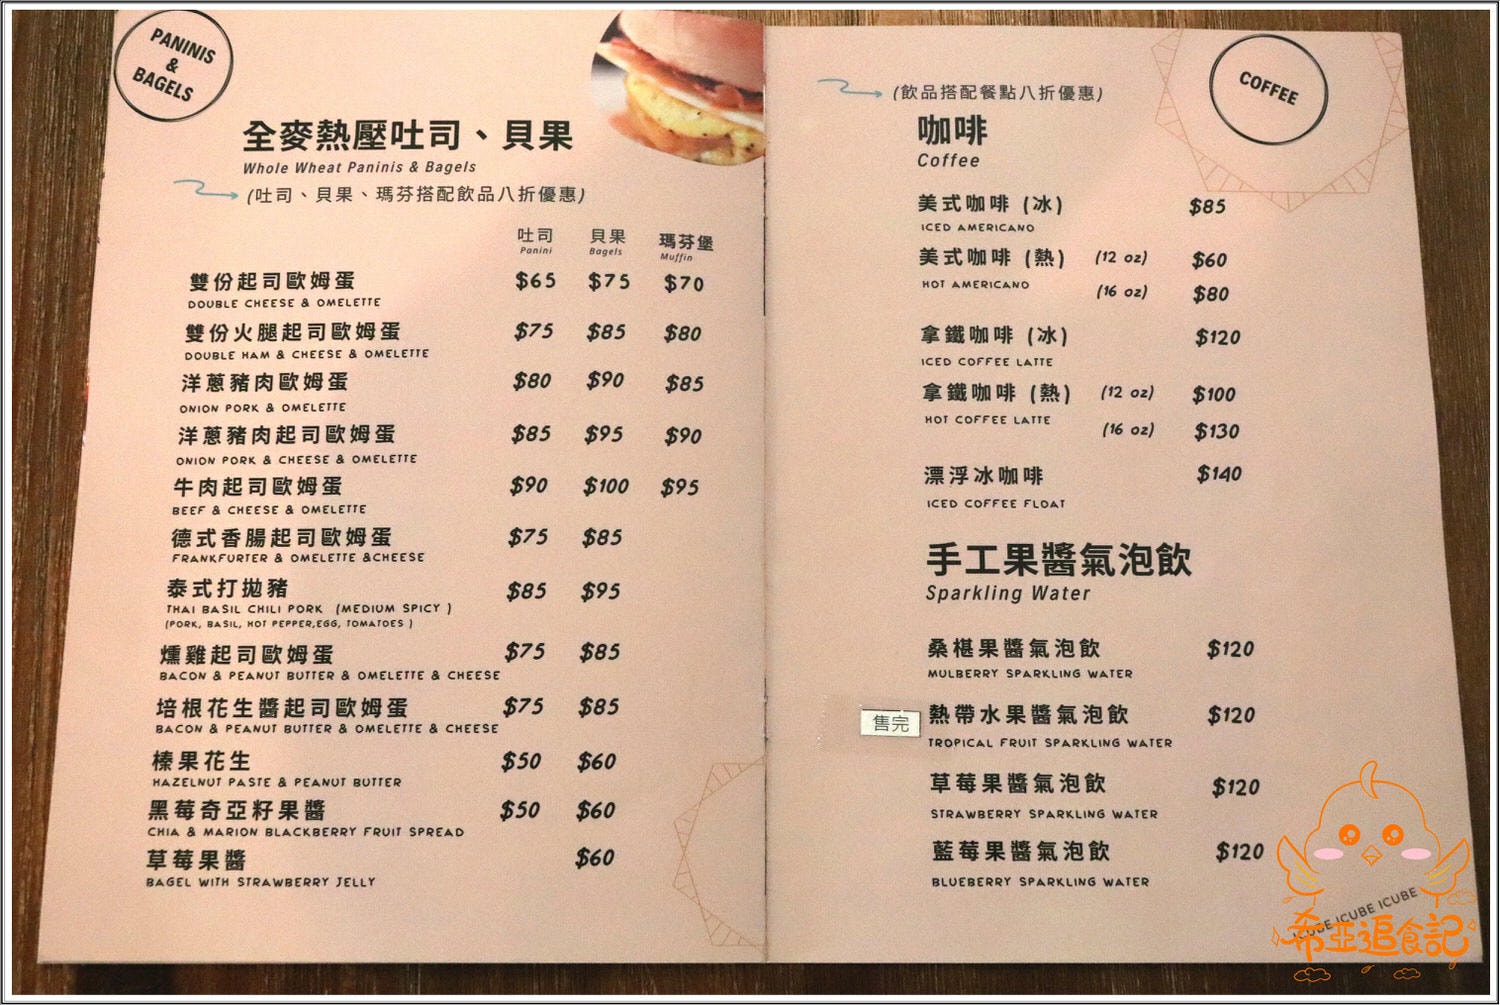 PANINIS
&
BAGELS
全麥熱壓吐司、貝果
Whole Wheat Paninis & Bagels
(吐司、貝果、瑪芬搭配飲品八折優惠)
吐司 貝果 瑪芬堡
Panini Bagels Muffin
雙份起司歐姆蛋 $65 $75 $70
DOUBLE CHEESE & OMELETTE
雙份火腿起司歐姆蛋 $75 $85 $80
DOUBLE HAM & CHEESE & OMELETTE
洋蔥豬肉歐姆蛋 $80 $90 $85
ONION PORK & OMELETTE
洋蔥豬肉起司歐姆蛋 $85 $95 $90
ONION PORK & CHEESE & OMELETTE
牛肉起司歐姆蛋 $90 $100 $95
BEEF & CHEESE & OMELETTE
德式香腸起司歐姆蛋 $75 $85
FRANKFURTER & OMELETTE &CHEESE
泰式打拋豬 $85 $95
THAI BASIL CHILI PORK (MEDIUM SPICY )
(PORK, BASIL, HOT PEPPER,EGG, TOMATOES )
燻雞起司歐姆蛋 $75 $85
BACON & PEANUT BUTTER & OMELETTE & CHEESE
培根花生醬起司歐姆蛋 $75 $85
BACON & PEANUT BUTTER & OMELETTE & CHEESE
榛果花生 $50 $60
HAZELNUT PASTE & PEANUT BUTTER
黑莓奇亞籽果醬 $50 $60
CHIA & MARION BLACKBERRY FRUIT SPREAD
草莓果醬 $60
BAGEL WITH STRAWBERRY JELLY
COFFEE
(飲品搭配餐點八折優惠)
咖啡
Coffee
美式咖啡 (冰) $85
ICED AMERICANO
美式咖啡 (熱) (12 oz) $60
HOT AMERICANO (16 oz) $80
拿鐵咖啡 (冰) $120
ICED COFFEE LATTE
拿鐵咖啡 (熱) (12 oz) $100
HOT COFFEE LATTE (16 oz) $130
漂浮冰咖啡 $140
ICED COFFEE FLOAT
手工果醬氣泡飲
Sparkling Water
桑椹果醬氣泡飲 $120
MULBERRY SPARKLING WATER
售完 熱帶水果醬氣泡飲 $120
TROPICAL FRUIT SPARKLING WATER
草莓果醬氣泡飲 $120
STRAWBERRY SPARKLING WATER
藍莓果醬氣泡飲 $120
BLUEBERRY SPARKLING WATER
ICUBE ICUBE
希亞追食記